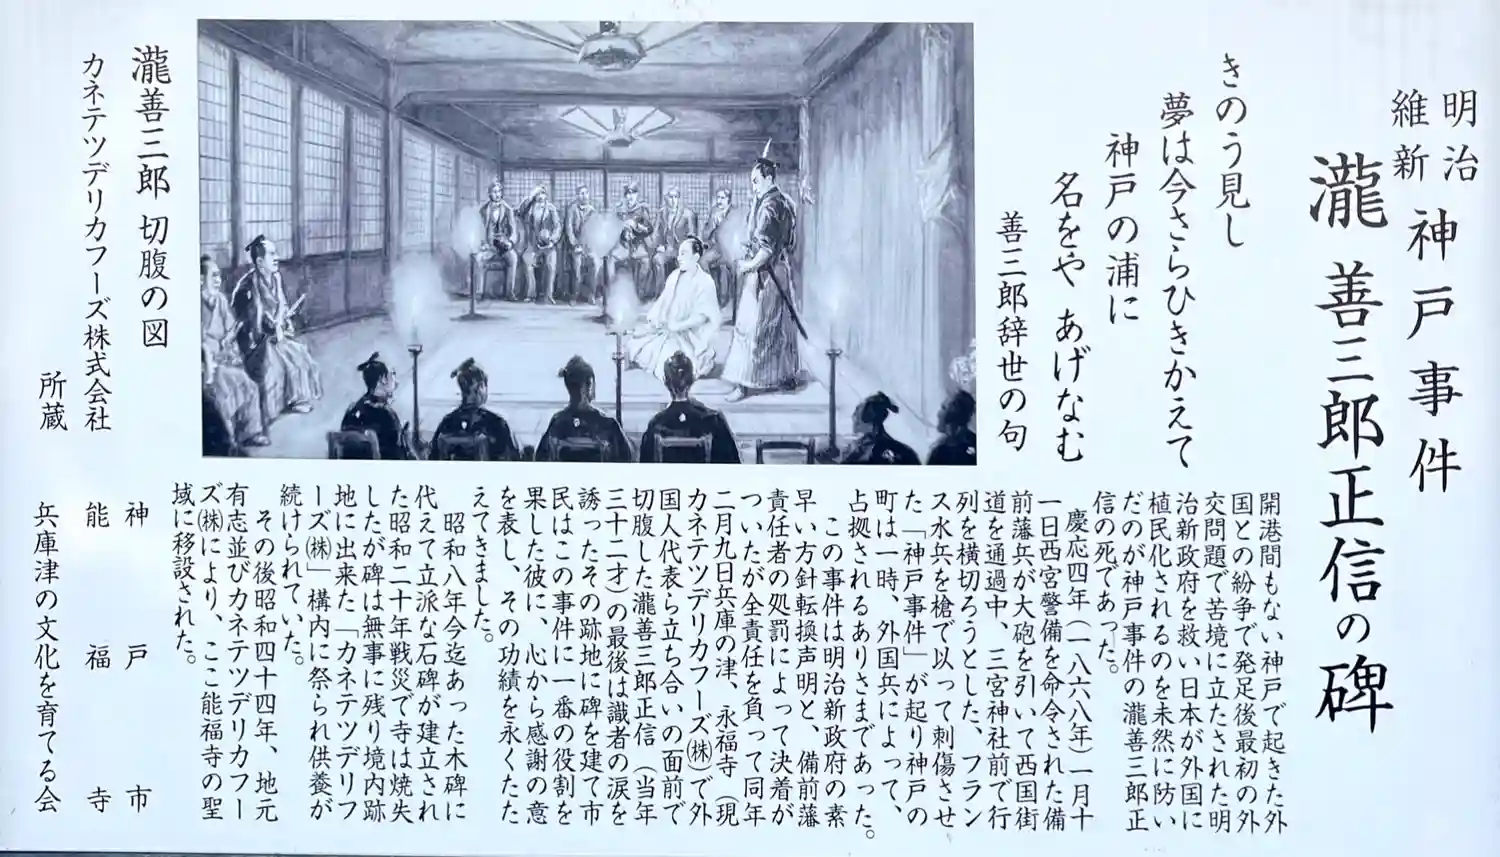 明治
維新
神戸事件
瀧善三郎正信の碑
きのう見し
夢は今さらひきかえて
神戸の浦に
名をや あげなむ
善三郎辞世の句
開港間もない神戸で起きた外
国との紛争で発足後最初の外
交問題で苦境に立たされた明
治新政府を救い日本が外国に
植民化されるのを未然に防い
だのが神戸事件の瀧善三郎正
信の死であった。
慶応四年(一八六八年)一月十
一日西宮警備を命令された備
前藩兵が大砲を引いて西国街
道を通過中、三宮神社前で行
列を横切ろうとした、フラン
ス水兵を槍で以って刺傷させ
た「神戸事件」が起り神戸の
町は一時、外国兵によって、
占拠されるありさまであった。
この事件は明治新政府の素
早い方針転換声明と、備前藩
責任者の処罰によって決着が
ついたが全責任を負って同年
二月九日兵庫の津、永福寺(現
カネテツデリカフーズ㈱)で外
国人代表ら立ち合いの面前で
切腹した瀧善三郎正信(当年
三十二才)の最後は識者の涙を
誘ったその跡地に碑を建て市
民はこの事件に一番の役割を
果した彼に、心から感謝の意
を表し、その功績を永くたた
えてきました。
昭和八年今迄あった木碑に
代えて立派な石碑が建立され
た昭和二十年戦災で寺は焼失
したが碑は無事に残り境内跡
地に出来た「カネテツデリフ
ーズ㈱」構内に祭られ供養が
続けられていた。
その後昭和四十四年、地元
有志並びカネテツデリカフー
ズ㈱により、ここ能福寺の聖
域に移設された。
瀧善三郎 切腹の図
カネテツデリカフーズ株式会社
所蔵
神戸市
能福寺
兵庫津の文化を育てる会